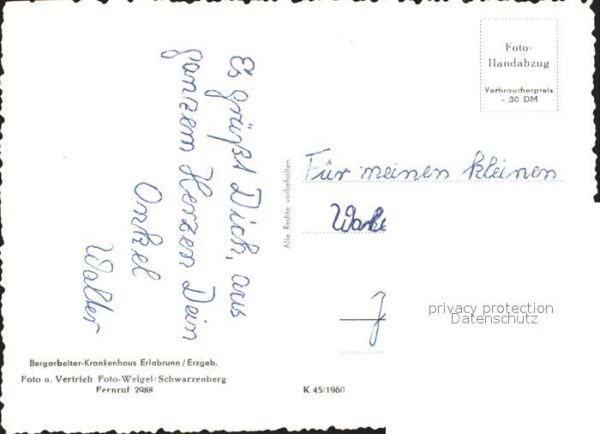 Es grüßt Dich, aus
ganzem Herzen Dein
Onkel
Walter
Bergarbeiter-Krankenhaus Erlabrunn/Erzgeb.
Foto u. Vertrieb Foto-Weigel/Schwarzenberg
Fernruf 2988
Alle Rechte vorbehalten
K 45/1960
Foto-
Handabzug
Verbraucherpreis
-.30 DM
Für meinen kleinen
J
privacy protection
Datenschutz